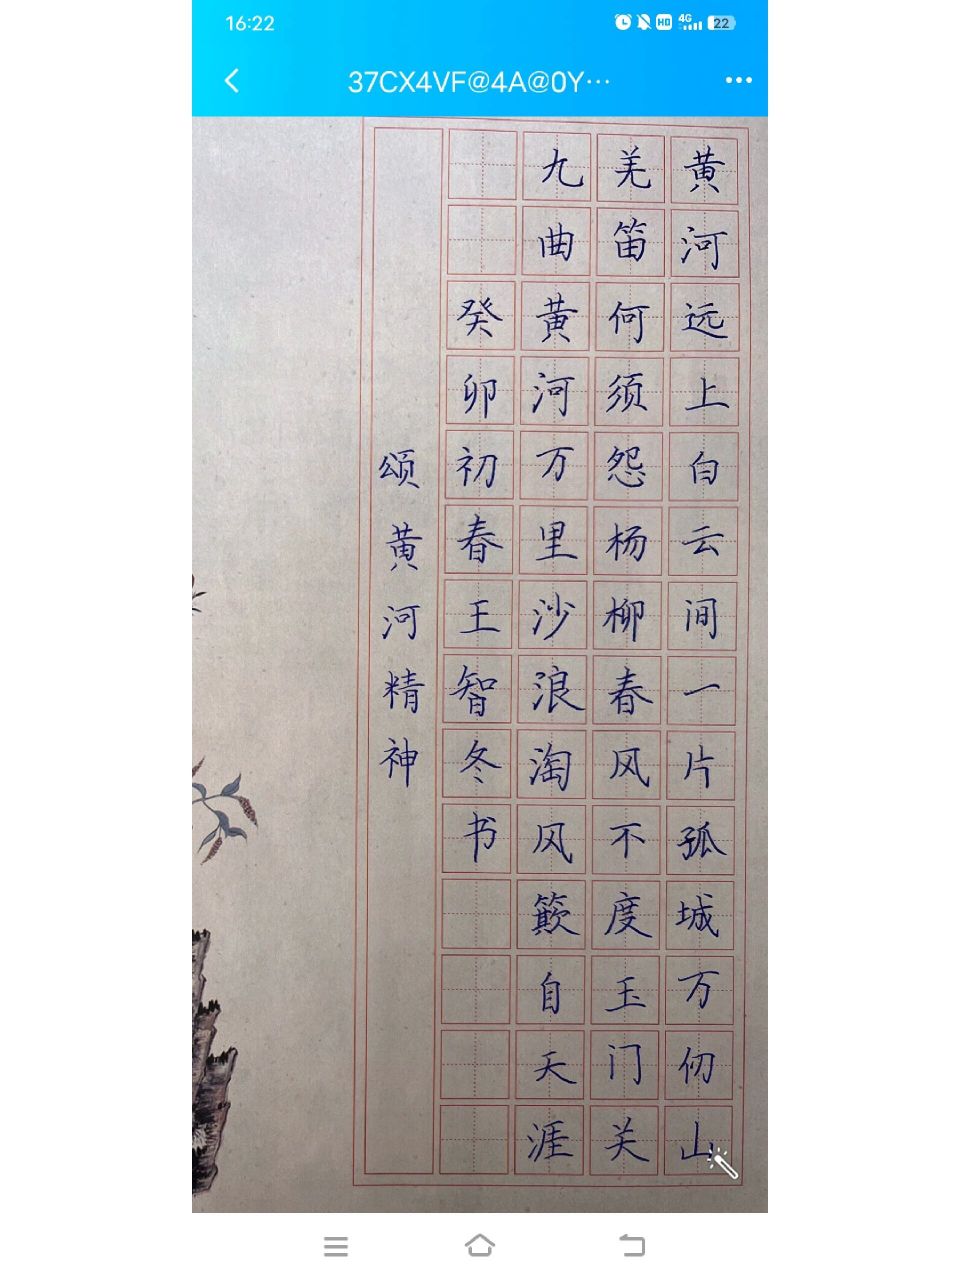 16:22
HD 4G 22
37CX4VF@4A@0Y…
黄河远上白云间一片孤城万仞山
羌笛何须怨杨柳春风不度玉门关
九曲黄河万里沙浪淘风簸自天涯
癸卯初春王智冬书
颂黄河精神